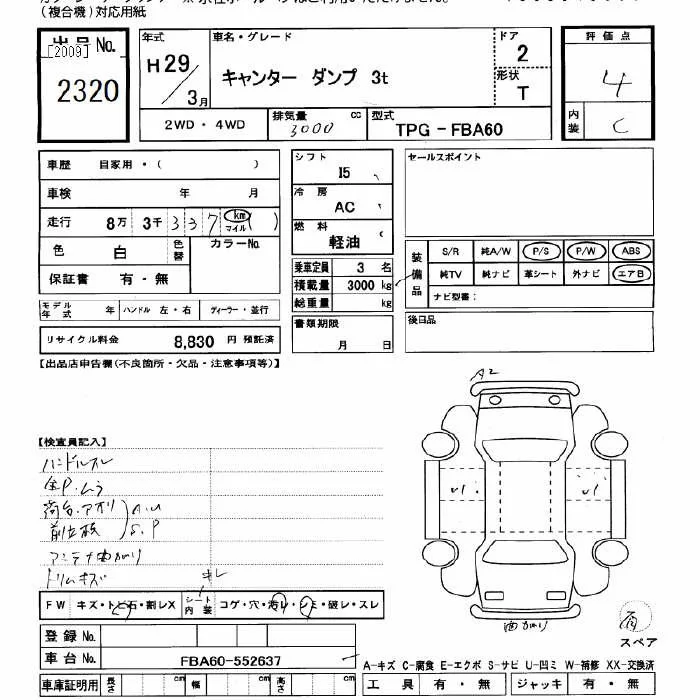 (複合機)対応用紙
出品No.
[2009]
2320
年式
H29/3月
車名・グレード
キャンター ダンプ 3t
ドア
2
形状
T
2WD・4WD
排気量
3000 cc
型式
TPG-FBA60
評価点
4
内装
C
車歴 自家用・( )
車検 年 月
走行 8万 3千 337 km マイル ( )
色 白 色替 カラーNo.
保証書 有・無
モデル年式 年 ハンドル 左・右 ディーラー・並行
リサイクル料金 8,830 円 預託済
シフト
I5
冷房
AC
燃料
軽油
乗車定員 3 名
積載量 3000 kg
総重量 kg
書類期限
月 日
セールスポイント
装備品
S/R 純A/W P/S P/W ABS
純TV 純ナビ 革シート 外ナビ エアB
ナビ型番:
後日品
【出品店申告欄(不良箇所・欠品・注意事項等)】
A2
【検査員記入】
ハンドルスレ
全P.ムラ
荷台.アオリ
A.U
前立板
S.P
アンテナ曲がり
トリムキズ
キレ
FW キズ・トビ石・割レX シート内装 コゲ・穴・汚レ・シミ・破レ・スレ
登録No.
車台No. FBA60-552637
車庫証明用 長さ cm 幅 cm 高さ cm
曲がり
スペア
A-キズ C-腐食 E-エクボ S-サビ U-凹ミ W-補修 XX-交換済
工具 有・無 ジャッキ 有・無